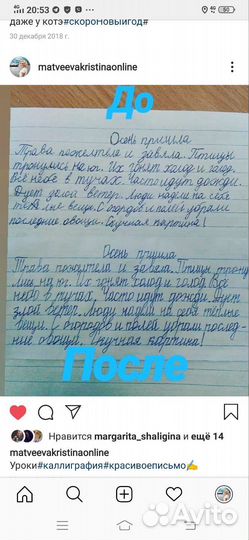 20:53
даже у котэ#скороновыйгод#
30 декабря 2018 г.
matveevakristinaonline
До
Осень пришла
Трава пожелтела и завяла. Птицы
тронулись на юг. Их гонят холод и голод.
Всё небо в тучах. Часто идут дожди.
Дует злой ветер. Люди надели на себя
тёплые вещи. С огородов и полей убрали
последние овощи. Скучная картина!
Осень пришла.
Трава пожелтела и завяла. Птицы трону
лись на юг. Их гонят холод и голод. Всё
небо в тучах. Часто идут дожди. Дует
злой ветер. Люди надели на себя тёплые
вещи. С огородов и полей убрали послед-
ние овощи. Скучная картина!
После
Нравится margarita_shaligina и ещё 14
matveevakristinaonline
Уроки#каллиграфия#красивоеписьмо✍
Avito